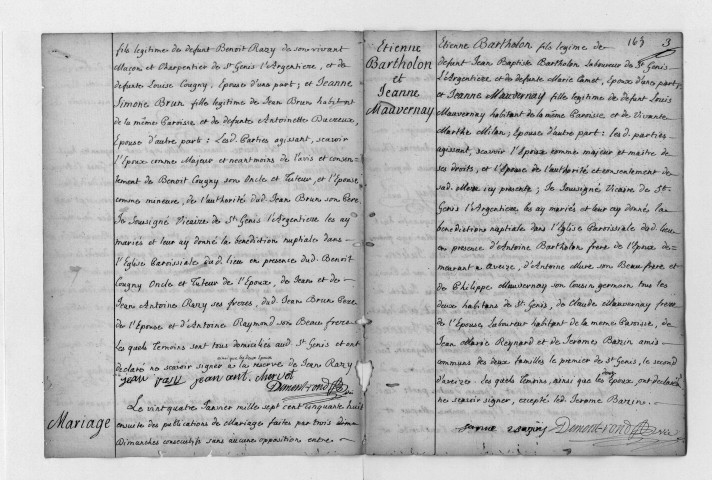 fils legitime des defunt Benoit Razy de son vivant
Maçon et Charpentier de St Genis l'Argentiere, et de
defunte Louise Cougny, Epoux d'une part; et Jeanne
Simone Brun fille legitime de Jean Brun habitant
de la même Paroisse et de defunte Antoinette
Epouse d'autre part: Lesd. Parties agissant, scavoir
l'Epoux comme Majeur et neantmoins de l'avis et consen-
tement de Benoit Cougny son Oncle et Tuteur, et l'Epouse
comme mineure, de l'authorité dud. Jean Brun son Pere
Je Soussigné Vicaire de St Genis l'Argentiere les ay
mariés et leur ay donné la benediction nuptiale dans
l'Eglise Paroissiale dud. lieu en presence dud. Benoit
Cougny Oncle et Tuteur de l'Epoux, de Jean et de
Jean Antoine Razy ses freres, dud. Jean Brun Pere
de l'Epouse et d'Antoine Raymond son Beau frere
Les quels Temoins sont tous domiciliés aud. St Genis et ont
ainsi que les deux Epoux
declaré ne scavoir signer a la reserve de Jean Razy
jean rasy jean ant.
Dumontrond
Mariage
Le vint quatre Janvier mille sept cent cinquante huit
ensuite des publications de Mariage faites par trois
Dimanches consecutifs sans aucune opposition entre
Etienne
Bartholon
et
Jeanne
Mauvernay
163 3
Etienne Bartholon fils legime de
defunt Jean Baptiste Bartholon Laboureur de St Genis
L'Argentiere et de defunte Marie Camet, Epoux d'une part;
et Jeanne Mauvernay fille legitime de defunt Louis
Mauvernay habitant de la même Paroisse, et de Vivante
Marthe Milan; Epouse d'autre part: les d. parties
agissant, scavoir l'Epoux comme majeur et maitre de
ses droits, et l'Epouse de l'authorité et consentement de
sad. Mere icy presente; Je Soussigné Vicaire de St
Genis l'Argentiere les ay mariés et leur ay donné la
benediction nuptiale dans l'Eglise Paroissiale dud. lieu
en presence d'Antoine Bartholon frere de l'Epoux de-
meurant a Aveize, d'Antoine Mure son Beau frere et
de Philippe Mauvernay son Cousin germain tous les
deux habitans de St Genis, de Claude Mauvernay frere
de l'Epouse, Laboureur habitant de la meme Paroisse, de
Jean Marie Reynard et de Jerome Bazin amis
communs des deux familles le premier de St Genis, le second
d'aveize. les quels Temoins, ainsi que les Epoux, ont declaré
ne scavoir signer, excepté led. Jerome Bazin.
Dumontrond